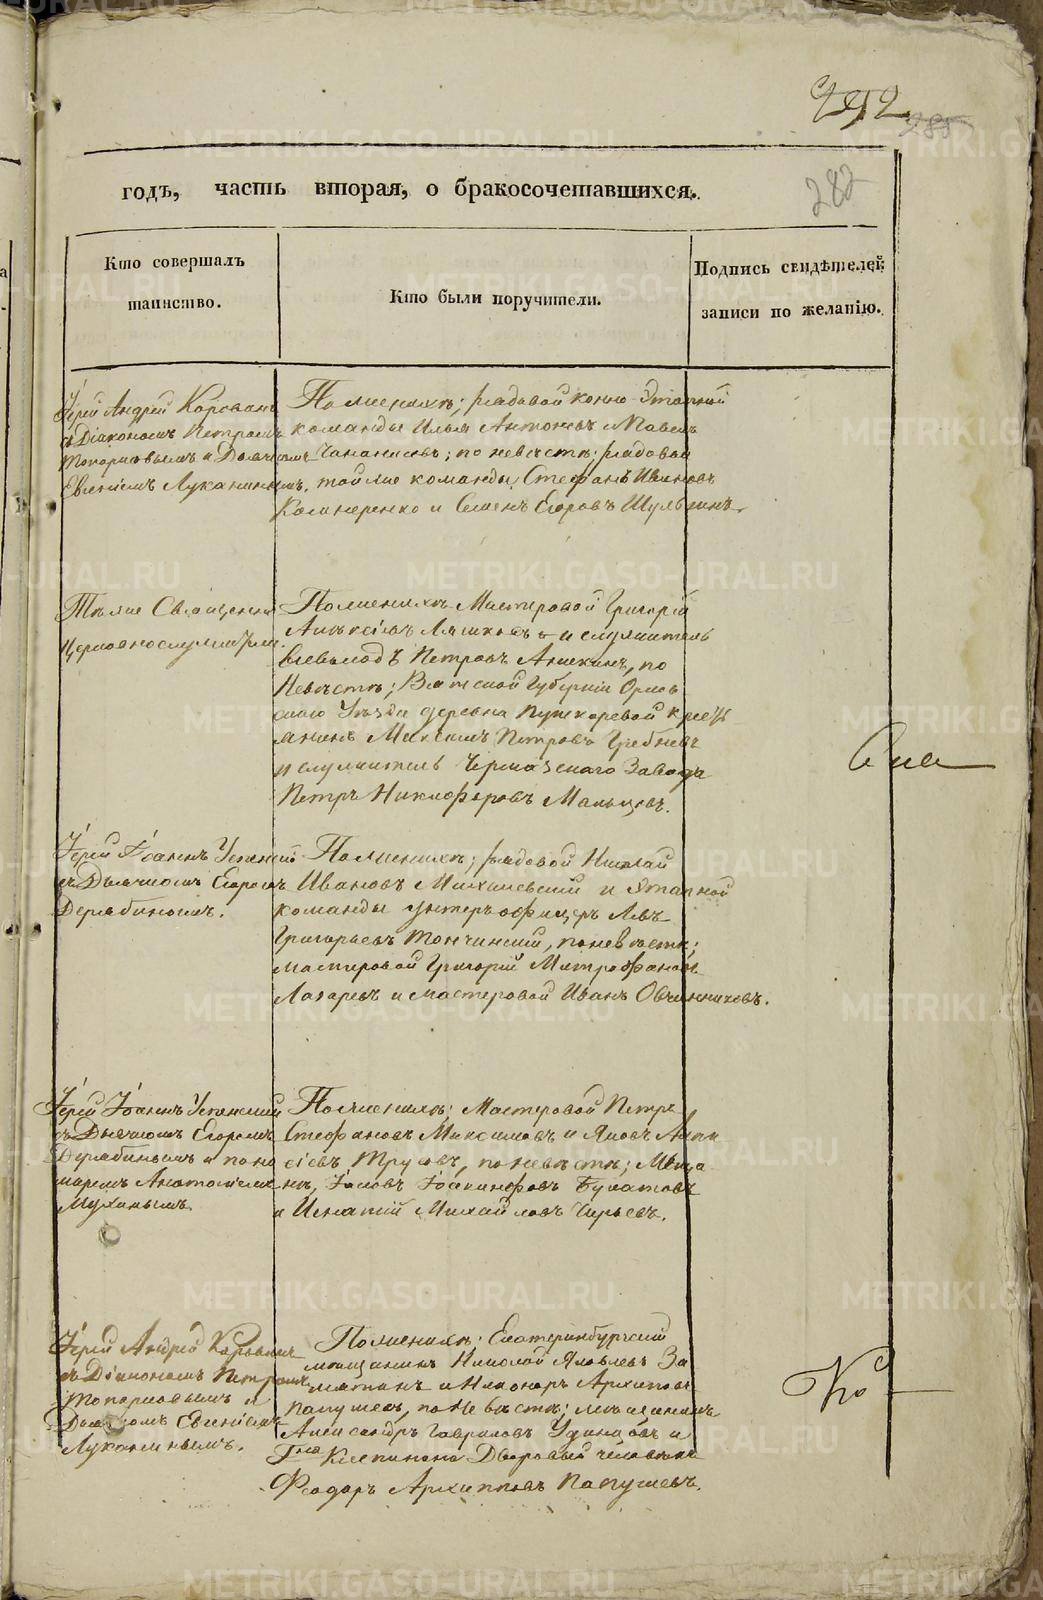 292
285
282
годъ, часть вторая, о бракосочетавшихся.
Кто совершалъ
таинство.
Кто были поручители.
Подпись свидѣтелей
записи по желанію.
Іерей Андрей
съ Діакономъ Петромъ
Топорковымъ и Дьячкомъ
Евгеніемъ Луканинымъ.
По женихѣ; рядовой конно-Этапной
команды Илья Антоновъ Павелъ
по невѣстѣ; рядовой
той же команды, Стефанъ Ивановъ
и Семенъ Егоровъ Шульгинъ.
Тѣ же Священно
церковнослужители.
По женихѣ Мастеровой Григорій
Алексѣевъ и служитель
Всеволодъ Петровъ Аникинъ, по
Невѣстѣ; Вятской Губерніи Орлов
скаго Уѣзда деревни Пушкаревой крестъ
янинъ Максимъ Петровъ Гребневъ
и служитель Чермозскаго Завода
Петръ Никифоровъ Мальцовъ.
Іерей Іоаннъ Успенскій
съ Дьячкомъ Егоромъ
Дерябинымъ.
По женихѣ; рядовой Николай
Ивановъ и Этапной
команды унтеръ офицеръ Левъ
Григорьевъ Тончинскій, по невѣстѣ;
мастеровой Григорій Митрофанов
Лазаревъ и мастеровой Иванъ Овчинниковъ.
Іерей Іоаннъ Успенскій
съ Дьячкомъ Егоромъ
Дерябинымъ и поно
маремъ Анатоліемъ
Мухинымъ
По женихѣ; Мастеровой Петръ
Стефановъ Максимовъ и Яковъ Алек
сѣевъ Трусовъ, по невѣстѣ; Мѣща
не, Іаковъ Іоакинфовъ Булатовъ
и Игнатій Михайловъ Чирьевъ.
Іерей Андрей
съ Діакономъ Петромъ
Топорковымъ и
Дьячкомъ Евгеніемъ
Луканинымъ.
По женихѣ; Екатеринбургскій
мѣщанинъ Николай Яковлевъ За
и Никаноръ Архиповъ
Папушевъ, по Невѣстѣ; мѣщанинъ
Александръ Гавриловъ Удинцовъ и
Гна Дворовый человѣкъ
Феодоръ Архиповъ Папушевъ.
METRIKI.GASO-URAL.RU